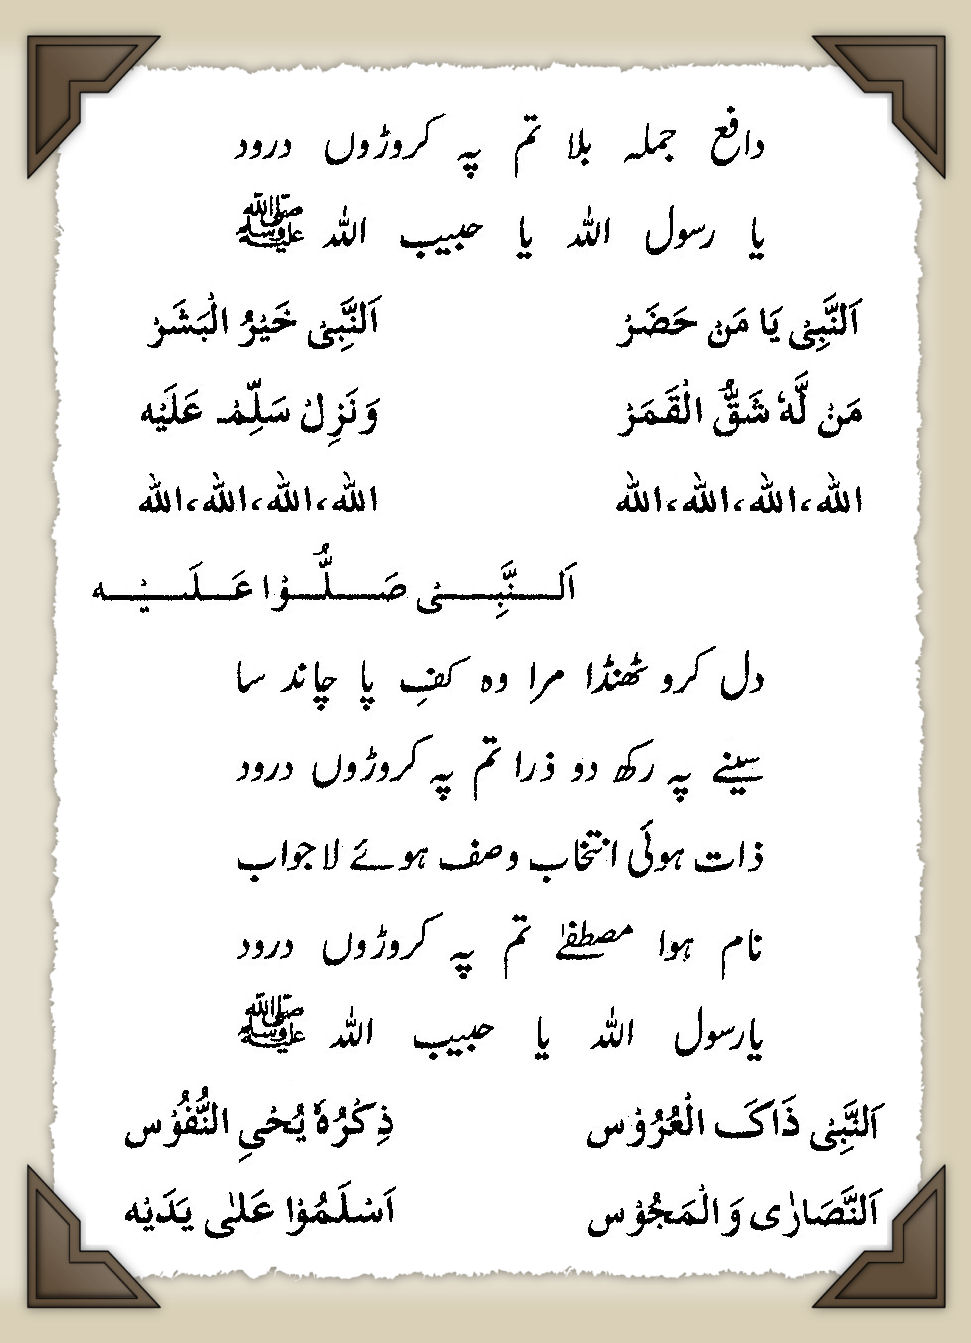 دافع جملہ بلا تم پہ کروڑوں درود
یا رسول اللہ یا حبیب اللہ ﷺ
اَلنَّبِیْ یَا مَنْ حَضَرْ اَلنَّبِیْ خَیْرُ الْبَشَرْ
مَنْ لَّهٗ شَقُّ الْقَمَرْ وَ نَزِلْ سَلِّمْ عَلَیْه
اللہ، اللہ، اللہ، اللہ اللہ، اللہ، اللہ، اللہ
اَلنَّبِیْ صَلُّوْا عَلَیْه
دل کرو ٹھنڈا مرا وہ کفِ پا چاند سا
سینے پہ رکھ دو ذرا تم پہ کروڑوں درود
ذات ہوئی انتخاب وصف ہوئے لاجواب
نام ہوا مصطفےٰ تم پہ کروڑوں درود
یارسول اللہ یا حبیب اللہ ﷺ
اَلنَّبِیْ ذَاکَ الْعُرُوْس ذِکْرُهٗ یُحْیِ النُّفُوْس
اَلنَّصَارٰی وَ الْمَجُوْس اَسْلَمُوْا عَلٰی یَدَیْه